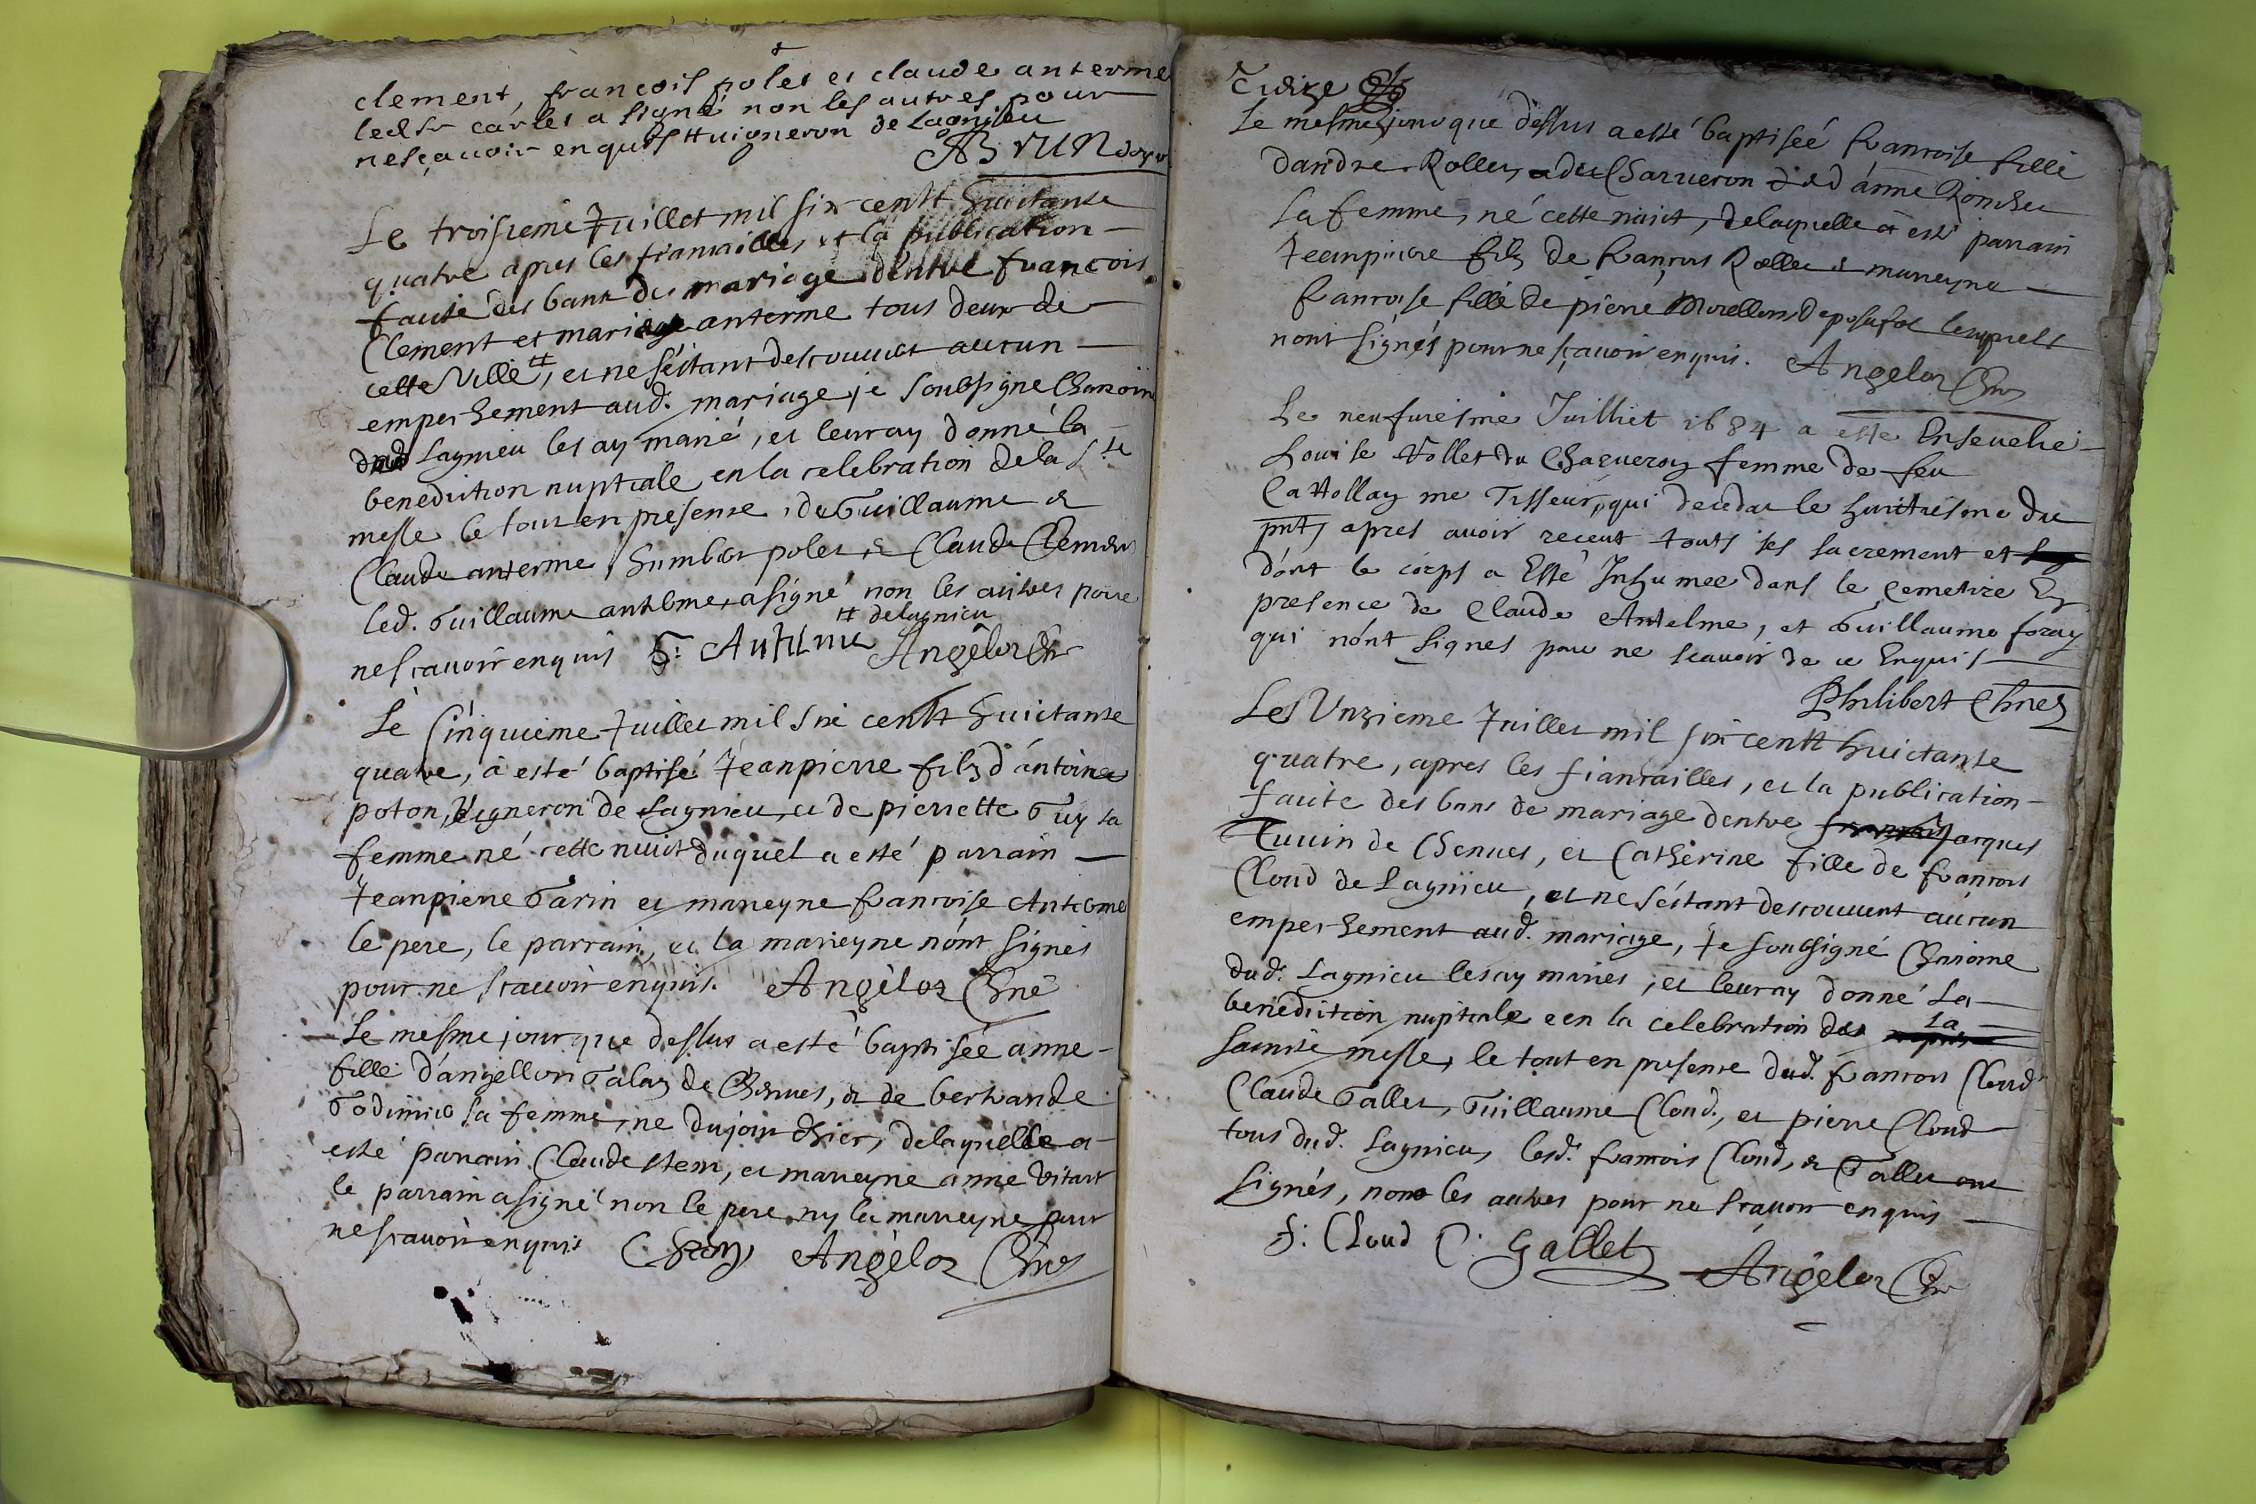 clement, francois polet et claude anterme
led. Sr carlet a signé non les autres pour
ne sçavoir enquis # uigneron de Lagnieu
Brun doyen
Le troisieme Juillet mil six centt huictante
quatre apres les fiancailles, et la publication
faite des bans de mariage d'entre francois
Clement et mariage anterme tous deux de
cette Ville #, et ne s'éstant descouuert aucun
empechement aud. mariage je soubsigne Chanoin
dud Lagnieu les ay marié, et leur ay donné la
benediction nuptiale en la celebration de la Ste
messe le tout en presence, de Guillaume et
Claude anterme, humbert polet et Claude Clement
led. Guillaume anthelme a signé non les autres pour
# de lagnieu
ne scavoir enquis G: Anthelme Angelot Chne
Le Cinquieme Juillet mil six centt huictante
quatre, à esté baptisé Jeanpierre filz d'antoine
poton, Vigneron de Lagnieu, et de pierrette Guy sa
femme né cette nuict duquel a esté parrain
Jeanpierre Garin et mareyne francoise Anterme
le pere, le parrain, et la mareyne n'ont signés
pour ne scauoir enquis. Angelot Chne
Le mesme jour que dessus a esté baptisée anne
fille d'angellon Galay de Chenues, et de bertrande
Godinio sa femme, ne du jour d'hier, de laquelle a
esté parrain Claude, et mareyne anne Vitart
le parrain a signé non le pere ny la mareyne pour
ne scauoir enquis C. Angelot Chne
Le mesme jour que dessus a esté baptiseé francoise fille
d'andre Rollet, de Charueron et d'anne
sa femme, né cette nuict, de laquelle à esté parrain
Jeanpierre filz de francois Rollet et mareyne
francoise fille de pierre Morellon lesquels
n'ont signés pour ne sçauoir enquis. Angelot Chne
Le neufuiesme Juilliet 1684 a esté Enseuelie
Louise Vollet du Chaqueroy femme de feu
me Tisseur, qui deceda le huittiesme du
pnt, apres auoir receut touts ses sacrement et
dont le corps a Esté Inhumee dans le Cemetire En
presence de Claude Antelme, et Guillaume foray
qui n'ont signes pour ne scauoir de ce Enquis
Philibert Chne
Les Unzieme Juillet mil six centt huictante
quatre, apres les fiancailles, et la publication
faite des bans de mariage d'entre francois Jacques
Cuuin de Chenues, et Catherine fille de francois
Cloud de Lagnieu, et ne s'éstant descouuert aucun
empechement aud. mariage, Je soubsigné Chanoine
dud. Lagnieu les ay mariés, et leur ay donné La
benediction nuptiale e en la celebration de la
Saincte messe, le tout en presence dud. francois Cloud
Claude Gallet, Guillaume Cloud, et pierre Cloud
tous dud. Lagnieu, lesd. francois Cloud, et Gallet ont
signés, non les autres pour ne scauoir enquis
f: Cloud C. Gallet Angelot Chne